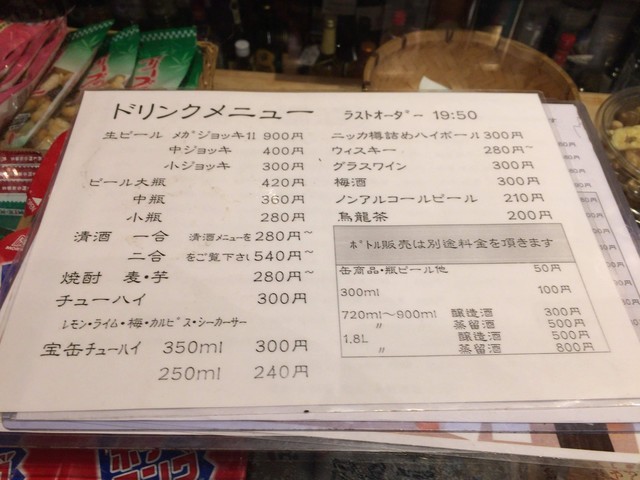 ドリンクメニュー ラストオーダー 19:50
生ビール メガジョッキ1l 900円
中ジョッキ 400円
小ジョッキ 300円
ビール大瓶 420円
中瓶 360円
小瓶 280円
清酒 一合 清酒メニューを 280円~
二合 をご覧下さい 540円~
焼酎 麦・芋 280円~
チューハイ 300円
レモン・ライム・梅・カルピス・シーカーサー
宝缶チューハイ 350ml 300円
250ml 240円
ニッカ樽詰めハイボール 300円
ウィスキー 280円~
グラスワイン 300円
梅酒 300円
ノンアルコールビール 210円
烏龍茶 200円
ボトル販売は別途料金を頂きます
缶商品・瓶ビール他 50円
300ml 100円
720ml~900ml 醸造酒 300円
〃 蒸留酒 500円
1.8L 醸造酒 500円
〃 蒸留酒 800円